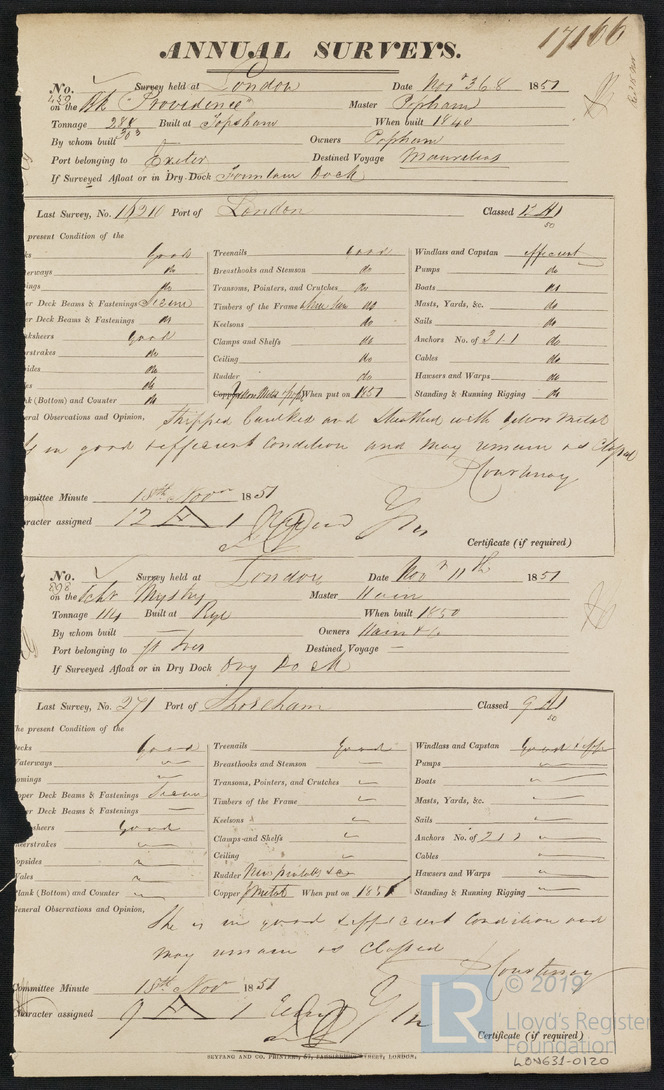 17166
ANNUAL SURVEYS.
No. 450 Survey held at London Date Nov 3 6 8 1851
on the Bk "Providence" Master Popham
Tonnage 288 303 Built at Topsham When built 1840
By whom built — Owners Popham
Port belonging to Exeter Destined Voyage Mauritius
If Surveyed Afloat or in Dry Dock Fountain Dock
Last Survey, No. Port of London Classed 12 A1 50
present Condition of the
ks Good Treenails Good Windlass and Capstan efficient
terways do Breasthooks and Stemson do Pumps do
ings do Transoms, Pointers, and Crutches do Boats do
er Deck Beams & Fastenings Seem Timbers of the Frame do Masts, Yards, &c. do
er Deck Beams & Fastenings do Keelsons do Sails do
ksheers Good Clamps and Shelfs do Anchors No. of 3 1 1 do
rstrakes do Ceiling do Cables do
sides do Rudder do Hawsers and Warps do
es do Copper Yellow Metal When put on 1851 Standing & Running Rigging do
nk (Bottom) and Counter do
eral Observations and Opinion, Stripped Caulked and Sheathed with Yellow Metal
is in good & efficient Condition and may remain as Classed
Courtenay
mmittee Minute 18th Nov 1851
racter assigned 12 A 1
Certificate (if required)
No. 898 Survey held at London Date Nov 11th 1851
on the Schr Mystery Master Hain
Tonnage 114 Built at Rye When built 1850
By whom built — Owners Hain & Co
Port belonging to St Ives Destined Voyage —
If Surveyed Afloat or in Dry Dock Dry Dock
Last Survey, No. 271 Port of Shoreham Classed 9 A1 50
he present Condition of the
ecks Good Treenails Good Windlass and Capstan Good & effi
Waterways Breasthooks and Stemson Pumps
omings Transoms, Pointers, and Crutches Boats
pper Deck Beams & Fastenings Seem Timbers of the Frame Masts, Yards, &c.
er Deck Beams & Fastenings Keelsons Sails
sheers Good Clamps and Shelfs Anchors No. of 2 1 1
eerstrakes Ceiling Cables
opsides Rudder New pintles &c Hawsers and Warps
Vales Copper Y Metal When put on 1851 Standing & Running Rigging
lank (Bottom) and Counter
eneral Observations and Opinion,
She is in good & efficient Condition and
may remain as Classed
Courtenay
ommittee Minute 18th Nov 1851
haracter assigned 9 A 1
Certificate (if required)
SEYFANG AND CO. PRINTERS, 57, FARRINGDON STREET, LONDON,
LR © 2019
Lloyd's Register
Foundation
LBV631-0120